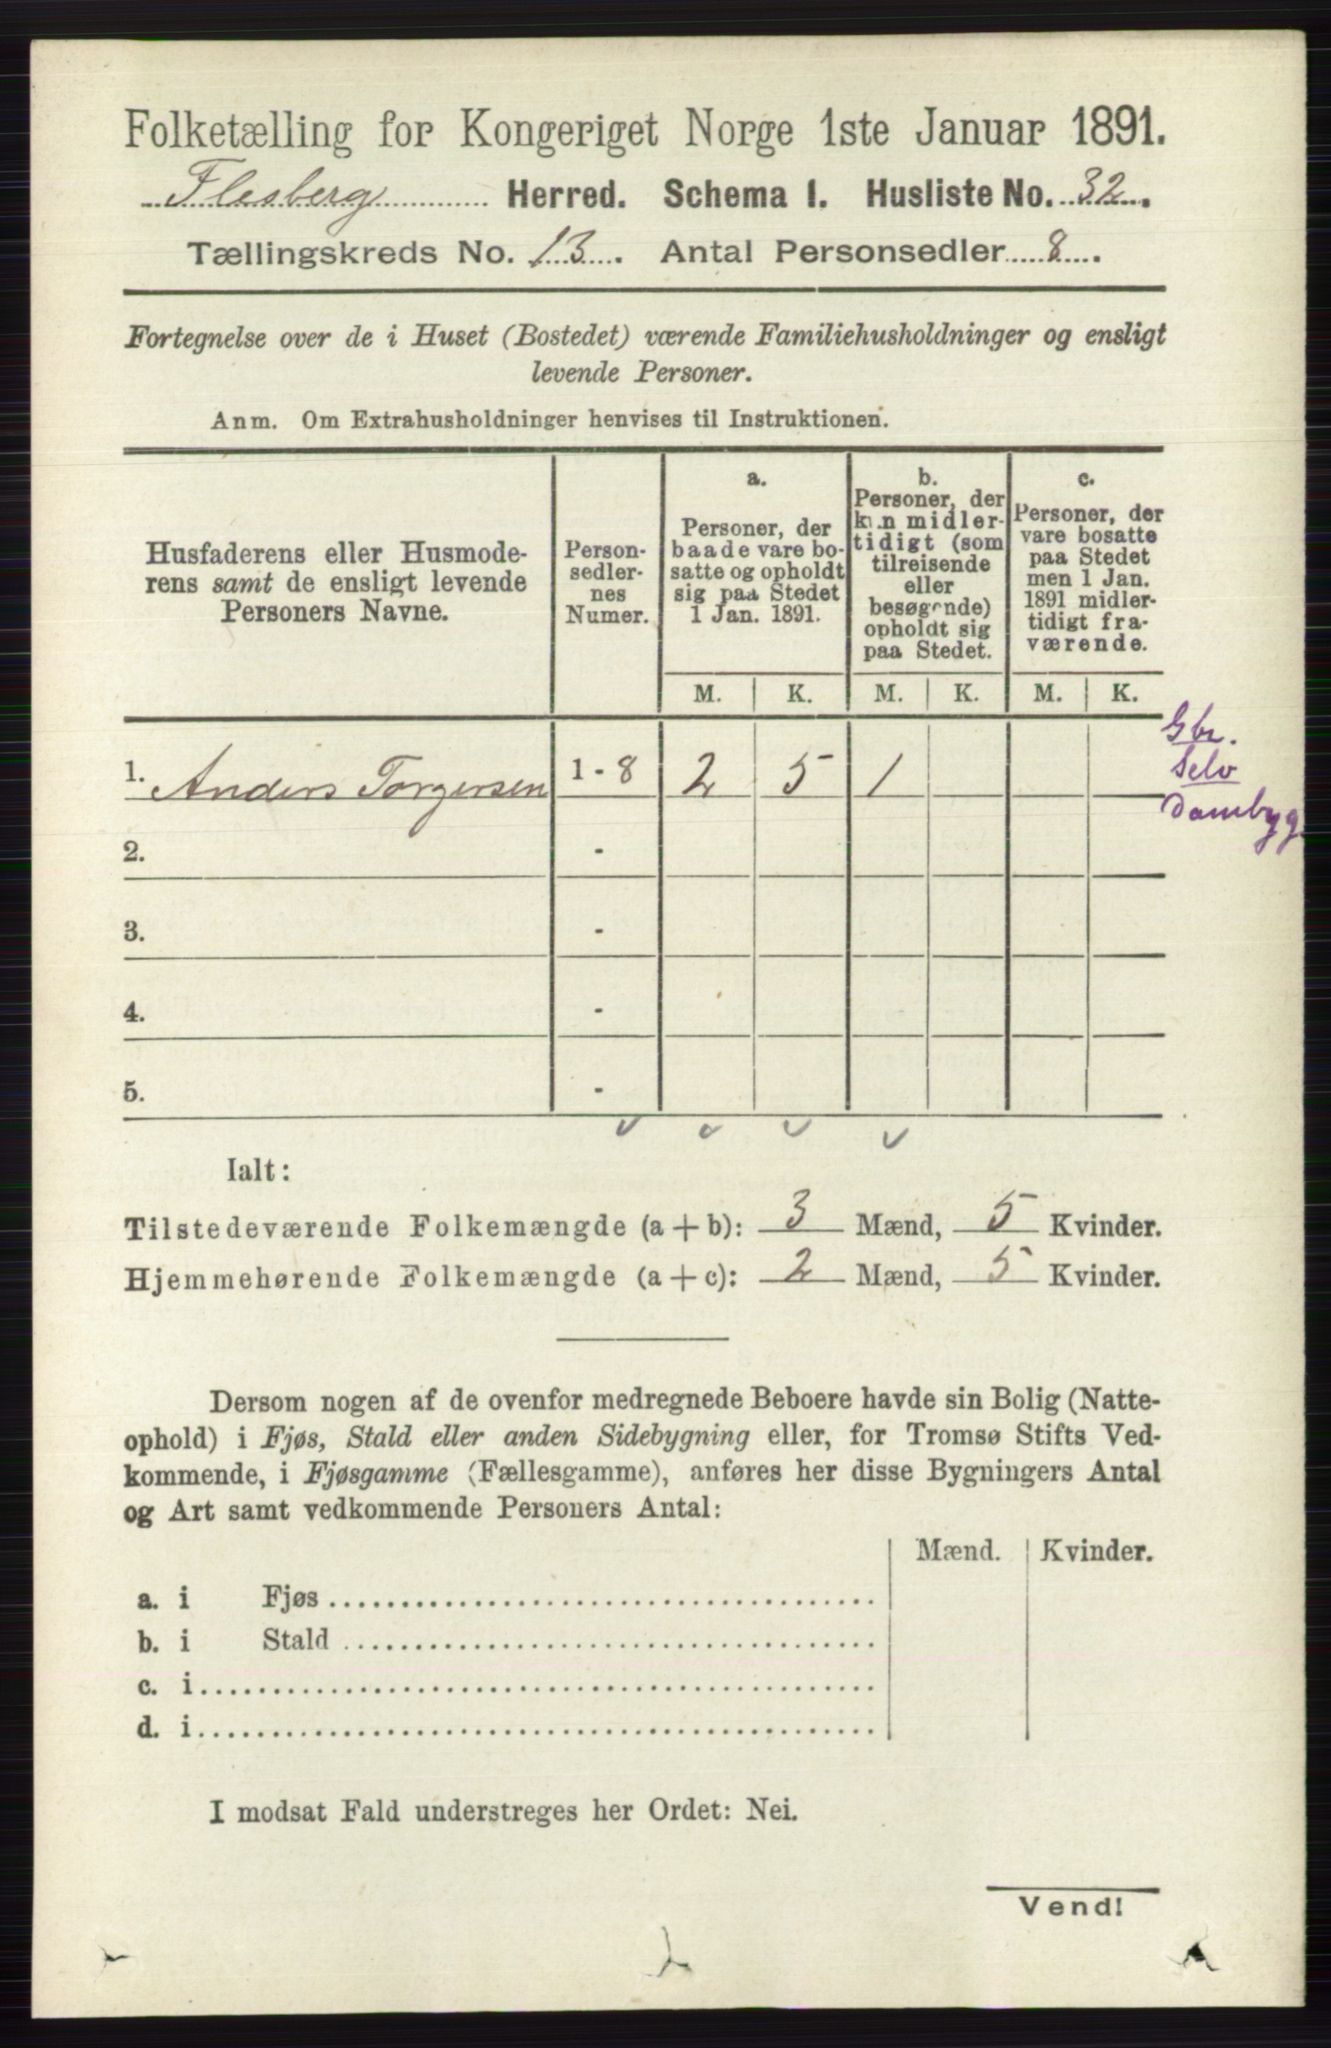 Folketælling for Kongeriget Norge 1ste Januar 1891.
Flesberg Herred. Schema I. Husliste No. 32.
Tællingskreds No. 13. Antal Personsedler 8.
Fortegnelse over de i Huset (Bostedet) værende Familiehusholdninger og ensligt
levende Personer.
Anm. Om Extrahusholdninger henvises til Instruktionen.
Husfaderens eller Husmode-
rens samt de ensligt levende
Personers Navne.
Person-
sedler-
nes
Numer.
a.
Personer, der
baade vare bo-
satte og opholdt
sig paa Stedet
1 Jan. 1891.
b.
Personer, der
kun midler-
tidigt (som
tilreisende
eller
besøgende)
opholdt sig
paa Stedet.
c.
Personer, der
vare bosatte
paa Stedet
men 1 Jan.
1891 midler-
tidigt fra-
værende.
M. K. M. K. M. K.
1. Anders Torgersen 1 - 8 2 5 1
Gbr.
Selv
Dambyg
2. -
3. -
4. -
5. -
Ialt:
Tilstedeværende Folkemængde (a + b): 3 Mænd, 5 Kvinder.
Hjemmehørende Folkemængde (a + c): 2 Mænd, 5 Kvinder.
Dersom nogen af de ovenfor medregnede Beboere havde sin Bolig (Natte-
ophold) i Fjøs, Stald eller anden Sidebygning eller, for Tromsø Stifts Ved-
kommende, i Fjøsgamme (Fællesgamme), anføres her disse Bygningers Antal
og Art samt vedkommende Personers Antal:
Mænd. Kvinder.
a. i Fjøs
b. i Stald
c. i
d. i
I modsat Fald understreges her Ordet: Nei.
Vend!